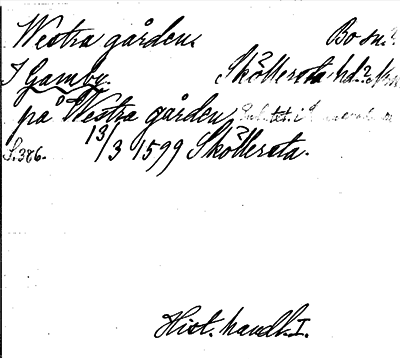 Westra gården. Bo sn.
I Gamby. Sköllersta hd.
på Westra gården
S. 386. 13/3 1599 Sköllersta.
Hist. handl. I.